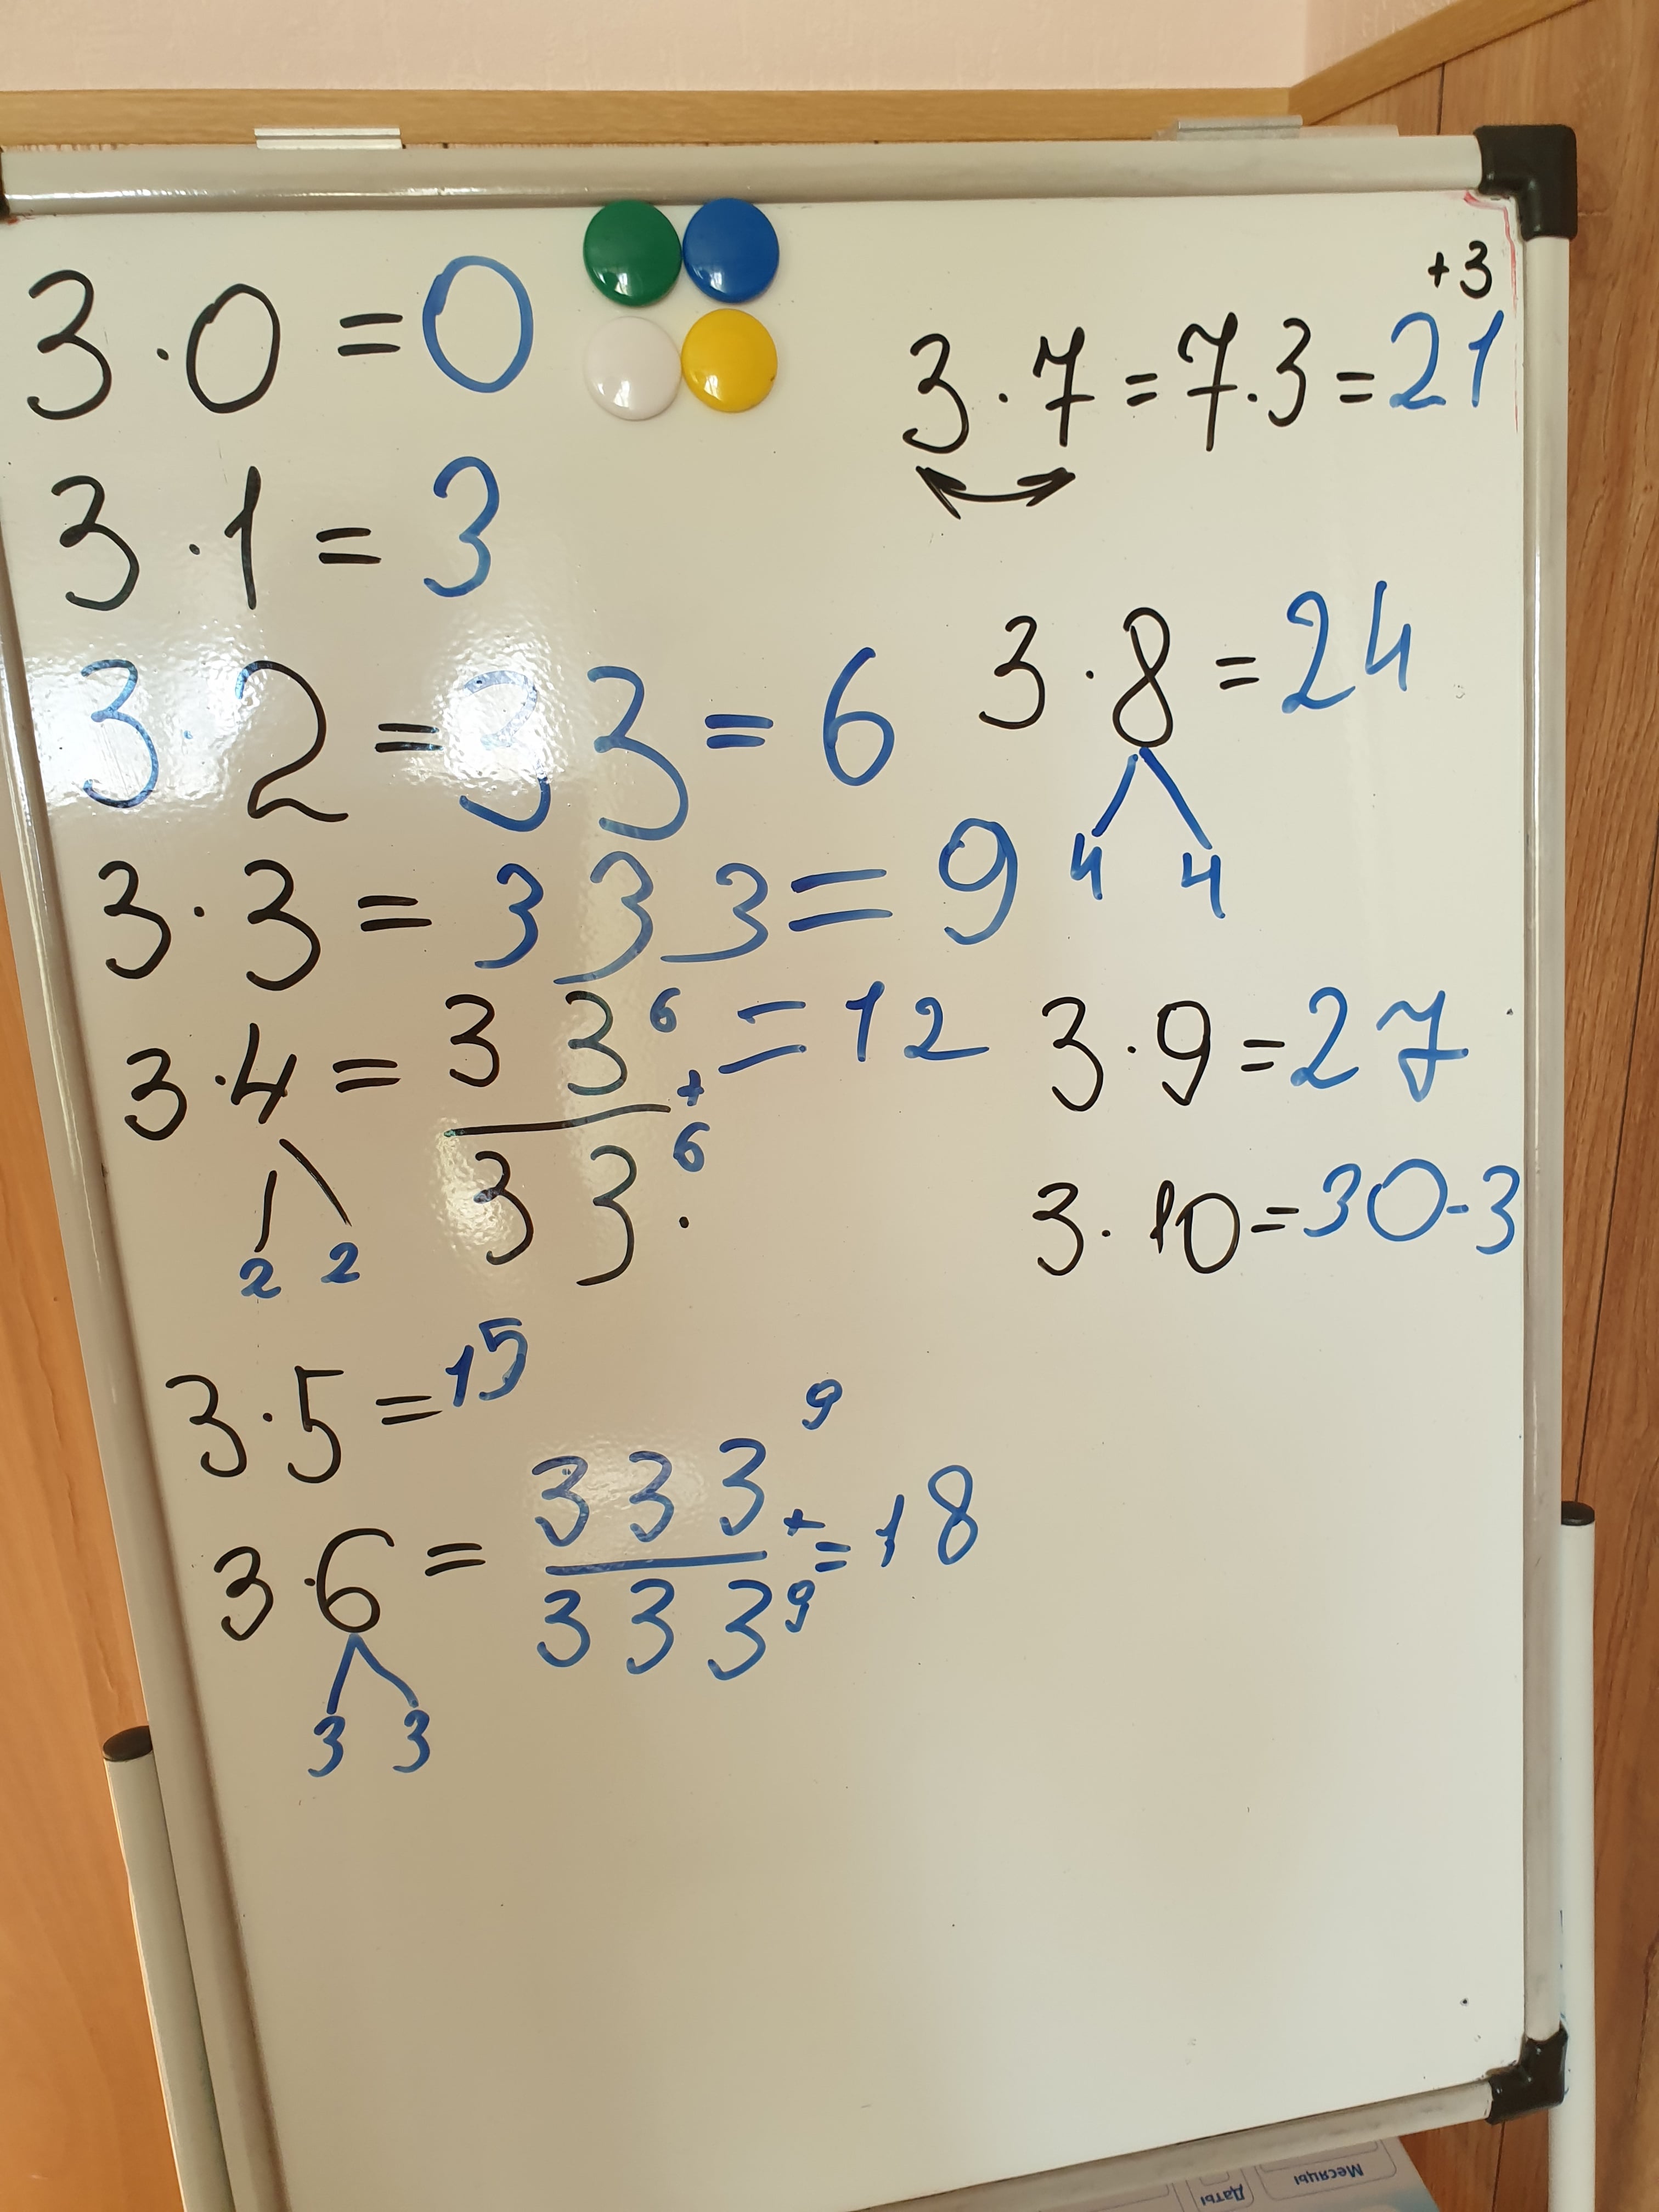 3·0=0
3·1=3
3·2=33=6
3·3=333=9
3·4=33 6 =12
+
33 6
2 2
3·5=15
9
3·6=333 + =18
333 9
3 3
+3
3·7=7·3=21
3·8=24
4 4
3·9=27
3·10=30-3
Месяцы
Даты